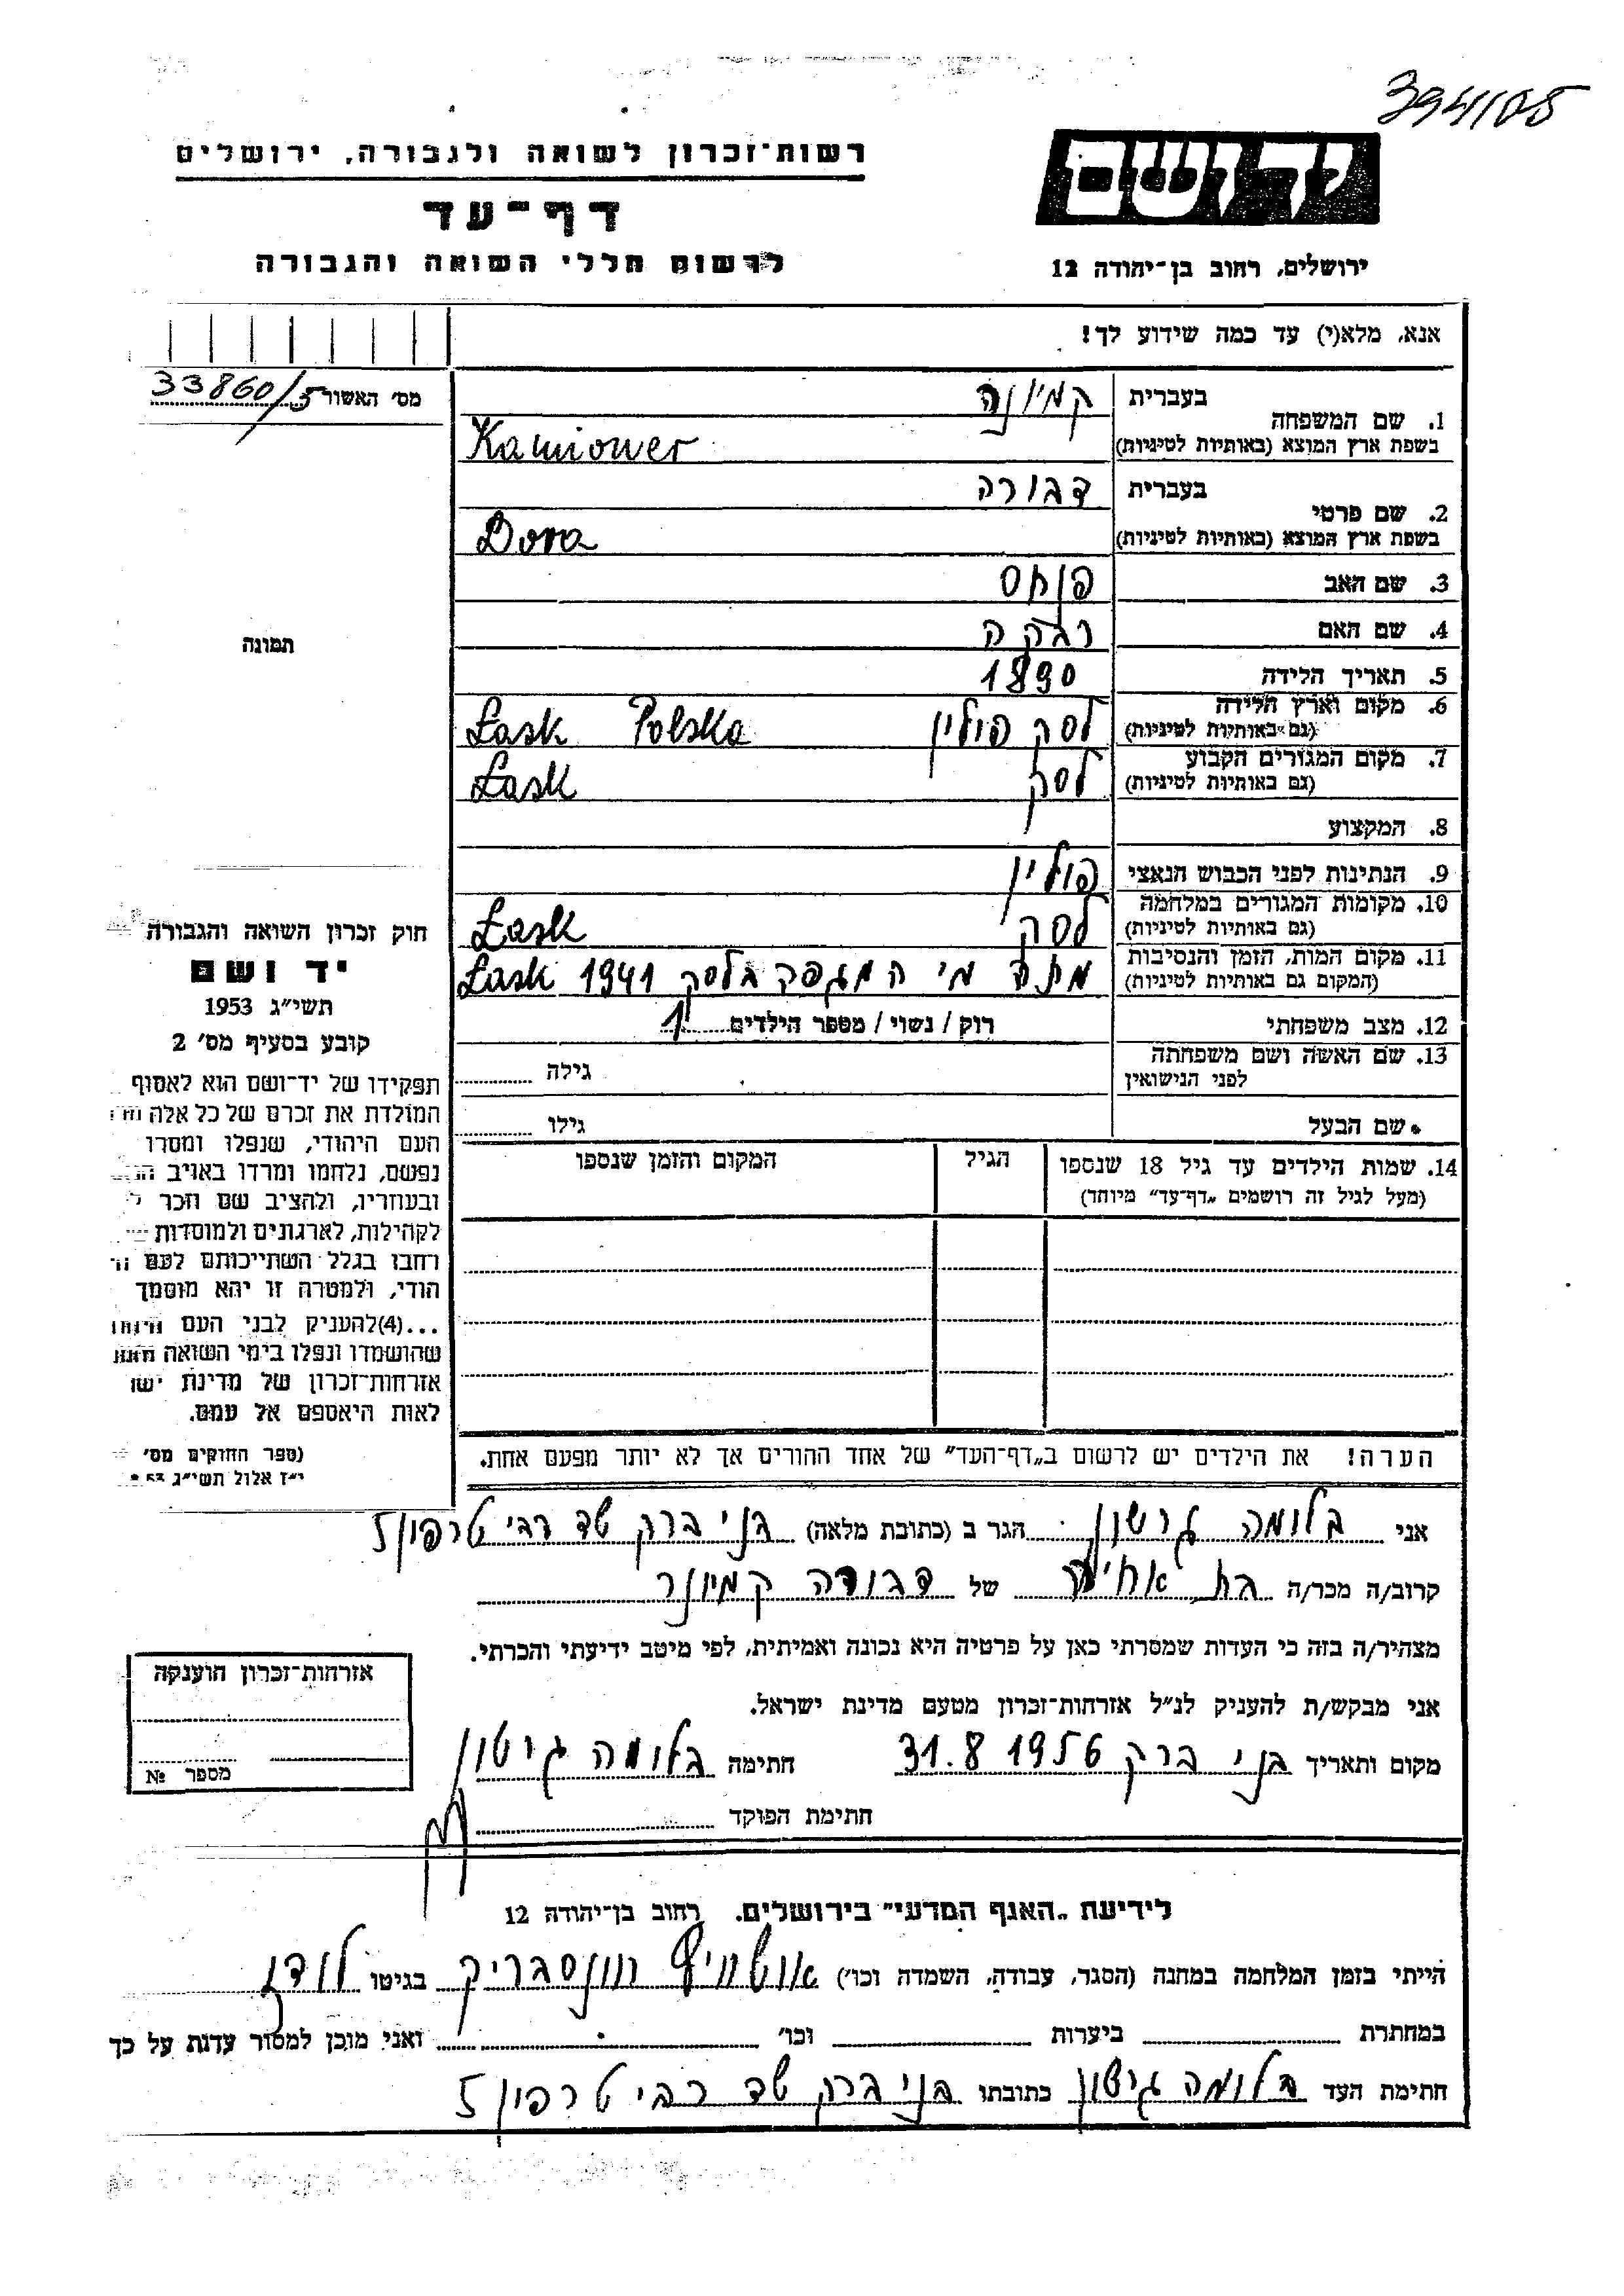 394105
רשות־זכרון לשואה ולגבורה, ירושלים
יד ושם
דף־עד
ירושלים, רחוב בן־יהודה 12
לרשום חללי השואה והגבורה
אנא, מלא(י) עד כמה שידוע לך!
מס׳ האשור 33860/5
1. שם המשפחה בעברית קמיונר
בשפת ארץ המוצא (באותיות לטיניות) Kamioner
2. שם פרטי בעברית דבורה
בשפת ארץ המוצא (באותיות לטיניות) Dora
3. שם האב פנחס
4. שם האם רבקה
5. תאריך הלידה 1890
6. מקום וארץ הלידה (גם באותיות לטיניות) לסק פולין Łask Polska
7. מקום המגורים הקבוע (גם באותיות לטיניות) לסק Łask
8. המקצוע
9. הנתינות לפני הכבוש הנאצי פולין
10. מקומות המגורים במלחמה (גם באותיות לטיניות) לסק Łask
11. מקום המות, הזמן והנסיבות (המקום גם באותיות לטיניות) מתה מי המגפה בלסק 1941 Łask
12. מצב משפחתי רוק / נשוי / מספר הילדים 1
13. שם האשה ושם משפחתה לפני הנישואין גילה
• שם הבעל גילו
14. שמות הילדים עד גיל 18 שנספו הגיל המקום והזמן שנספו
(מעל לגיל זה רושמים „דף־עד״ מיוחד)
תמונה
חוק זכרון השואה והגבורה
יד ושם
תשי״ג 1953
קובע בסעיף מס׳ 2
תפקידו של יד־ושם הוא לאסוף
המולדת את זכרם של כל אלה
העם היהודי, שנפלו ומסרו
נפשם, נלחמו ומרדו באויב
ובעוזריו, ולהציב שם וזכר
לקהילות, לארגונים ולמוסדות
חרבו בגלל השתייכותם לעם
הודי, ולמטרה זו יהא מוסמך
...(4) להעניק לבני העם
שהושמדו ונפלו בימי השואה
אזרחות־זכרון של מדינת
לאות היאספם אל עמם.
(ספר החוקים מס׳
י״ז אלול תשי״ג
הערה! את הילדים יש לרשום ב„דף־העד״ של אחד ההורים אך לא יותר מפעם אחת.
אני בלומה גרשון הגר ב (כתובת מלאה) בני ברק שד רבי טרפון 5
קרוב/ה מכר/ה בת של דבורה קמיונר
מצהיר/ה בזה כי העדות שמסרתי כאן על פרטיה היא נכונה ואמיתית, לפי מיטב ידיעתי והכרתי.
אני מבקש/ת להעניק לנ״ל אזרחות־זכרון מטעם מדינת ישראל.
מקום ותאריך בני ברק 31.8 1956 חתימה בלומה גרשון
חתימת הפוקד
אזרחות־זכרון הוענקה
מספר №
לידיעת „האגף המדעי״ בירושלים. רחוב בן־יהודה 12
הייתי בזמן המלחמה במחנה (הסגר, עבודה, השמדה וכו׳) בגיטו לודז
במחתרת ביערות וכו׳ ואני מוכן למסור עדות על כך
חתימת העד בלומה גרשון כתובתו בני ברק שד רבי טרפון 5